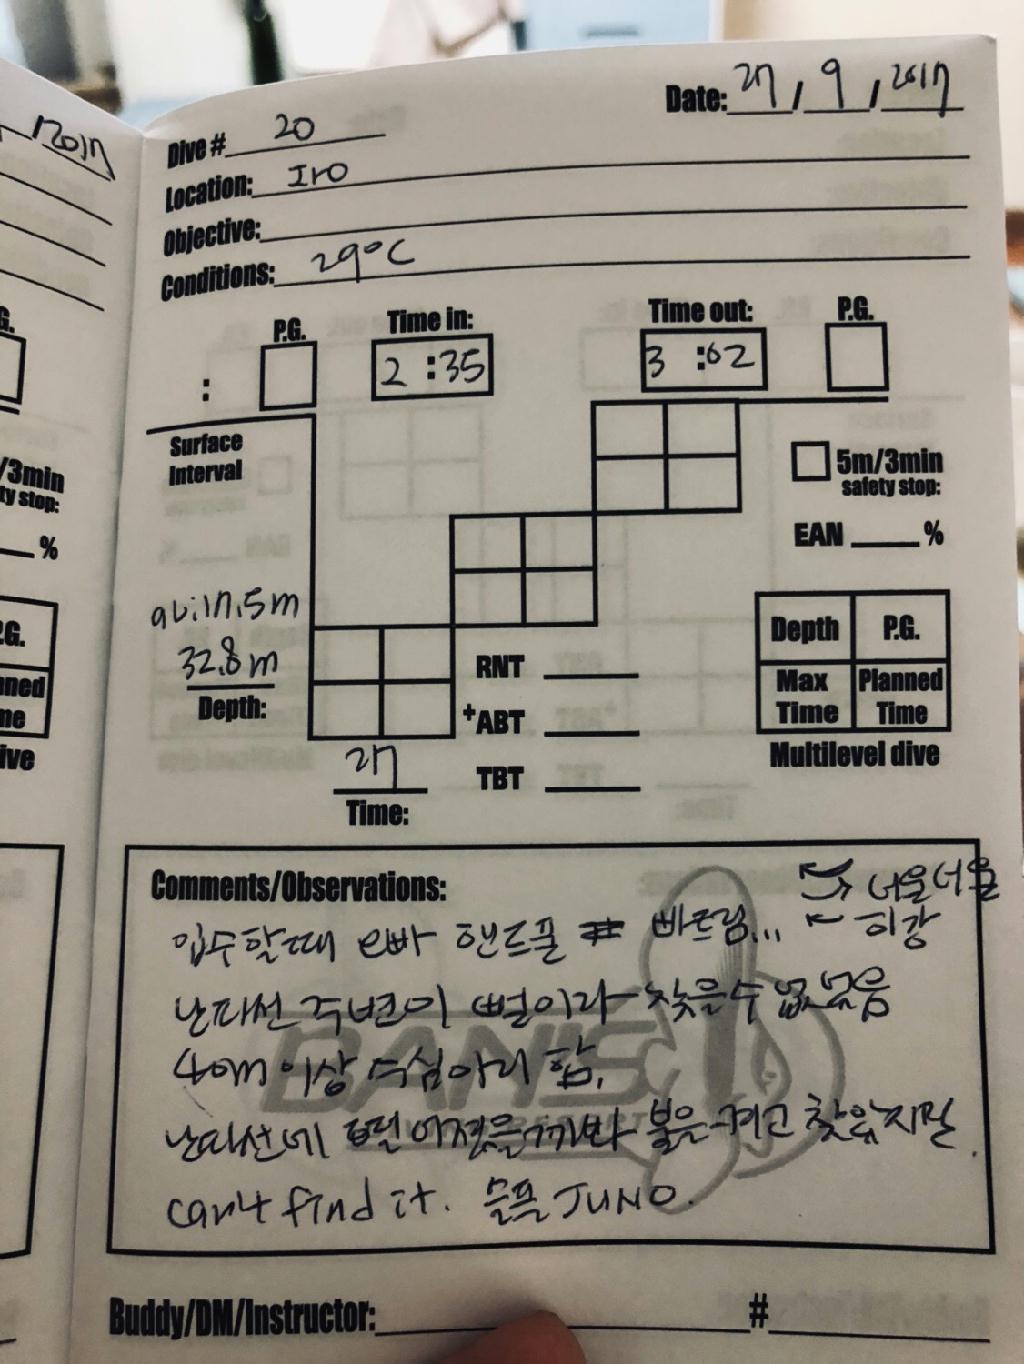 /2017
Dive # 20
Date: 27 / 9 / 2017
Location: Iro
Objective:
Conditions: 29°C
P.G.
Time in:
Time out:
P.G.
:
2 :35
3 :02
Surface
Interval
5m/3min
safety stop:
EAN %
av:17.5m
32.8m
Depth:
RNT
+ABT
TBT
27
Time:
Depth
P.G.
Max
Time
Planned
Time
Multilevel dive
/3min
ty stop:
%
Comments/Observations:
너울너울
입수할때 오빠 핸드폰 빠트림... 하강
난파선 주변이 뻘이라 찾을수 없었음
40m 이상 수심이라 함.
난파선에 떨어졌을까봐 불은 켜고 찾았지만
can't find it. 슬픔 JUNO.
BANIS
Buddy/DM/Instructor: #